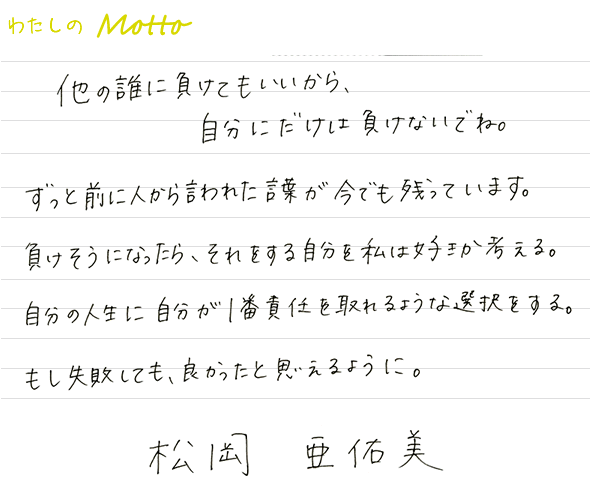 わたしの Motto
他の誰に負けてもいいから、
自分にだけは負けないでね。
ずっと前に人から言われた言葉が今でも残っています。
負けそうになったら、それをする自分を私は好きか考える。
自分の人生に自分が1番責任を取れるような選択をする。
もし失敗しても、良かったと思えるように。
松岡 亜佑美